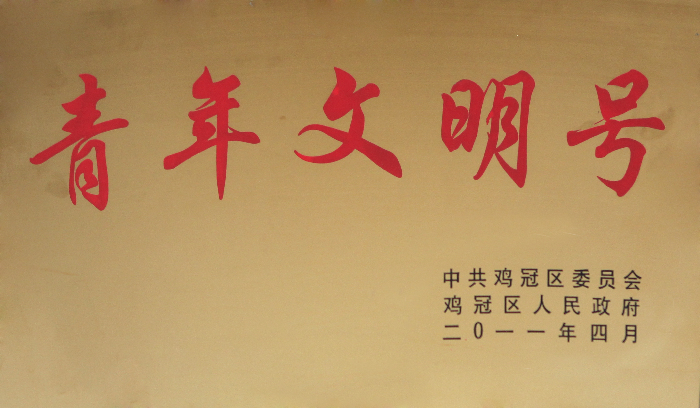 青年文明号
中共鸡冠区委员会
鸡冠区人民政府
二0一一年四月